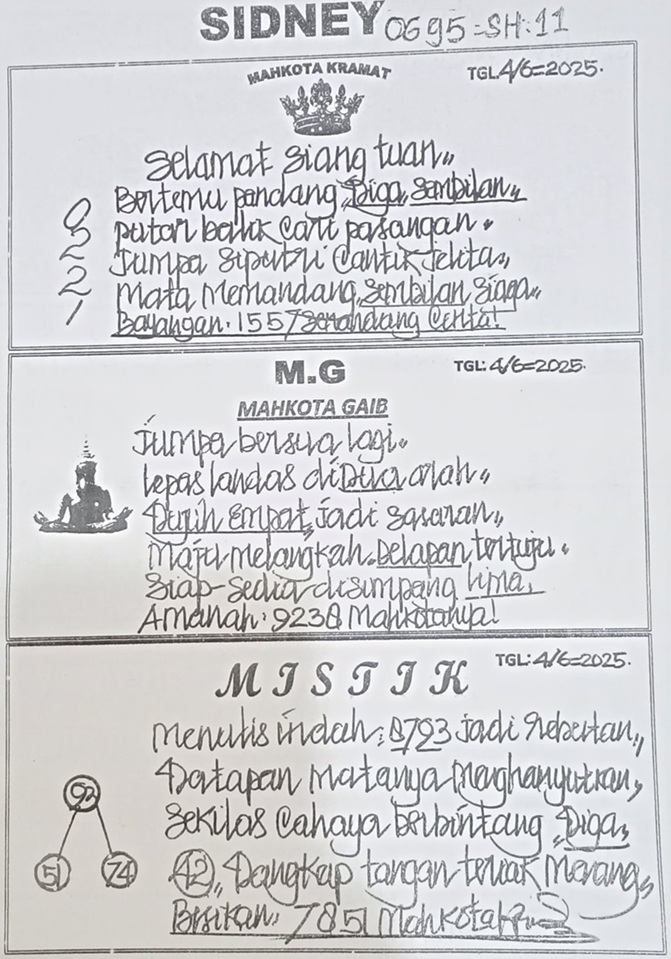 SIDNEY 0695=SH:11
MAHKOTA KRAMAT
TGL 4/6=2025.
Selamat Siang tuan,,
Bertemu pandang, Diga, Sambilan,,
putar balik Cari pasangan.
Jumpa Siputri Cantik Jelita,,
Mata Memandang, Sembilan Siaga,,
Bayangan. 1557 Senandung Cerita!
0
2
2
1
M.G
TGL: 4/6=2025.
MAHKOTA GAIB
Jumpa bersua lagi.
lepas landas di Dua arah,,
Dujuh Empat, Jadi Sasaran,,
Maju Melangkah. Delapan tertuju.
Siap-Sedia disimpang lima,
Amanah: 9238 Mahkotanya!
TGL: 4/6=2025.
MISTIK
Menulis indah: 8793 Jadi Rebutan,,
Datapan Matanya Menghanyutkan,
Sekilas Cahaya Berbintang, Diga,
42,, Dangkap tangan teriak Menang,
Besikan: 7851 Mahkota
93
51
74